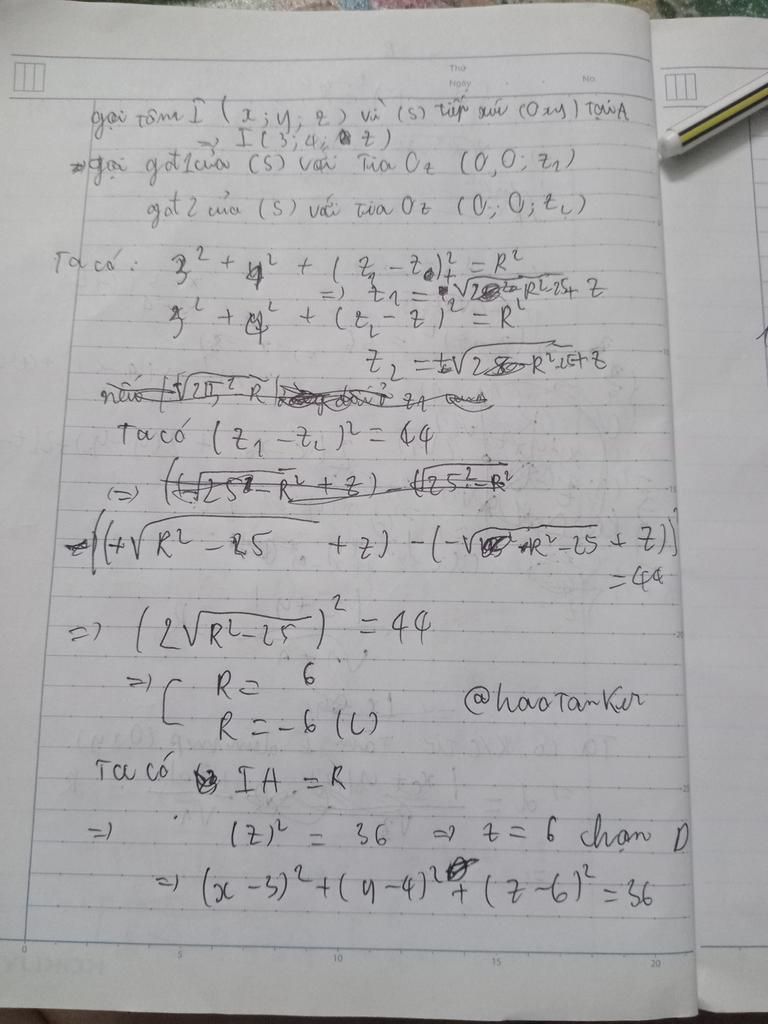 Thứ
Ngày
No.
gọi tâm I (x; y; z) vì (S) tiếp xúc (Oxy) tại A
=> I (3; 4; z)
gọi gđ1 của (S) với tia Oz (0, 0; z1)
gđ2 của (S) với tia Oz (0; 0; z2)
Ta có: 3² + 4² + (z1 - z)² = R²
=> z1 = ±√R²-25 + z
3² + 4² + (z2 - z)² = R²
z2 = ±√R²-25 + z
Ta có (z1 - z2)² = 44
((+√R² - 25 + z) - (-√R² - 25 + z))²
= 44
=> (2√R² - 25)² = 44
=> [ R = 6
R = -6 (L)
@haotanker
Ta có IA = R
=> (z)² = 36 => z = 6 chọn D
=> (x - 3)² + (y - 4)² + (z - 6)² = 36
0 5 10 15 20